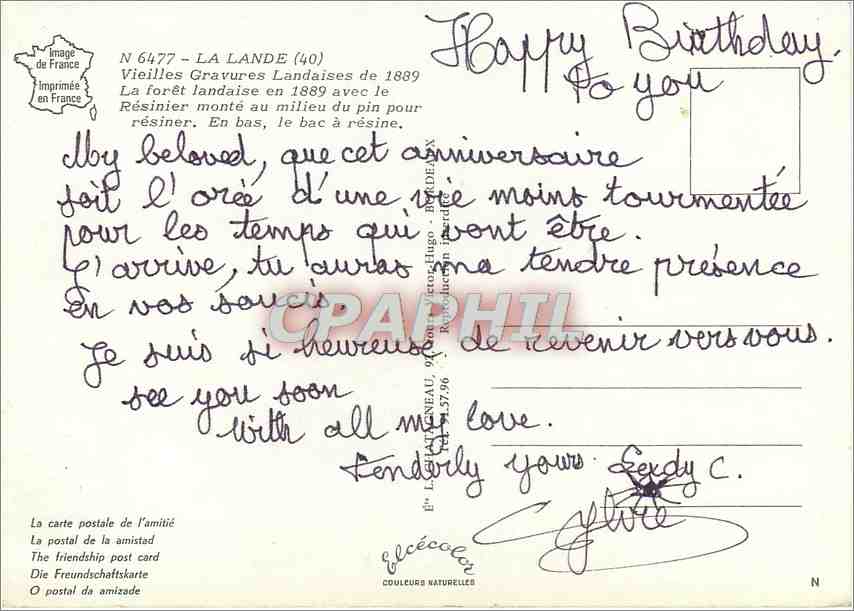 Image
de France
Imprimée
en France
N 6477 - LA LANDE (40)
Vieilles Gravures Landaises de 1889
La forêt landaise en 1889 avec le
Résinier monté au milieu du pin pour
résiner. En bas, le bac à résine.
Happy Birthday.
to you
My beloved, que cet anniversaire
soit l'orée d'une vie moins tourmentée
pour les temps qui vont être.
J'arrive, tu auras ma tendre présence
en vos soucis.
Je suis si heureuse de revenir vers vous.
see you soon
with all my love.
tenderly yours. C.
Sylvie
CPAPHIL
Victor-Hugo - BORDEAUX
Reproduction interdite
Tél. 91.57.96
La carte postale de l'amitié
La postal de la amistad
The friendship post card
Die Freundschaftskarte
O postal da amizade
elcécolor
COULEURS NATURELLES
N